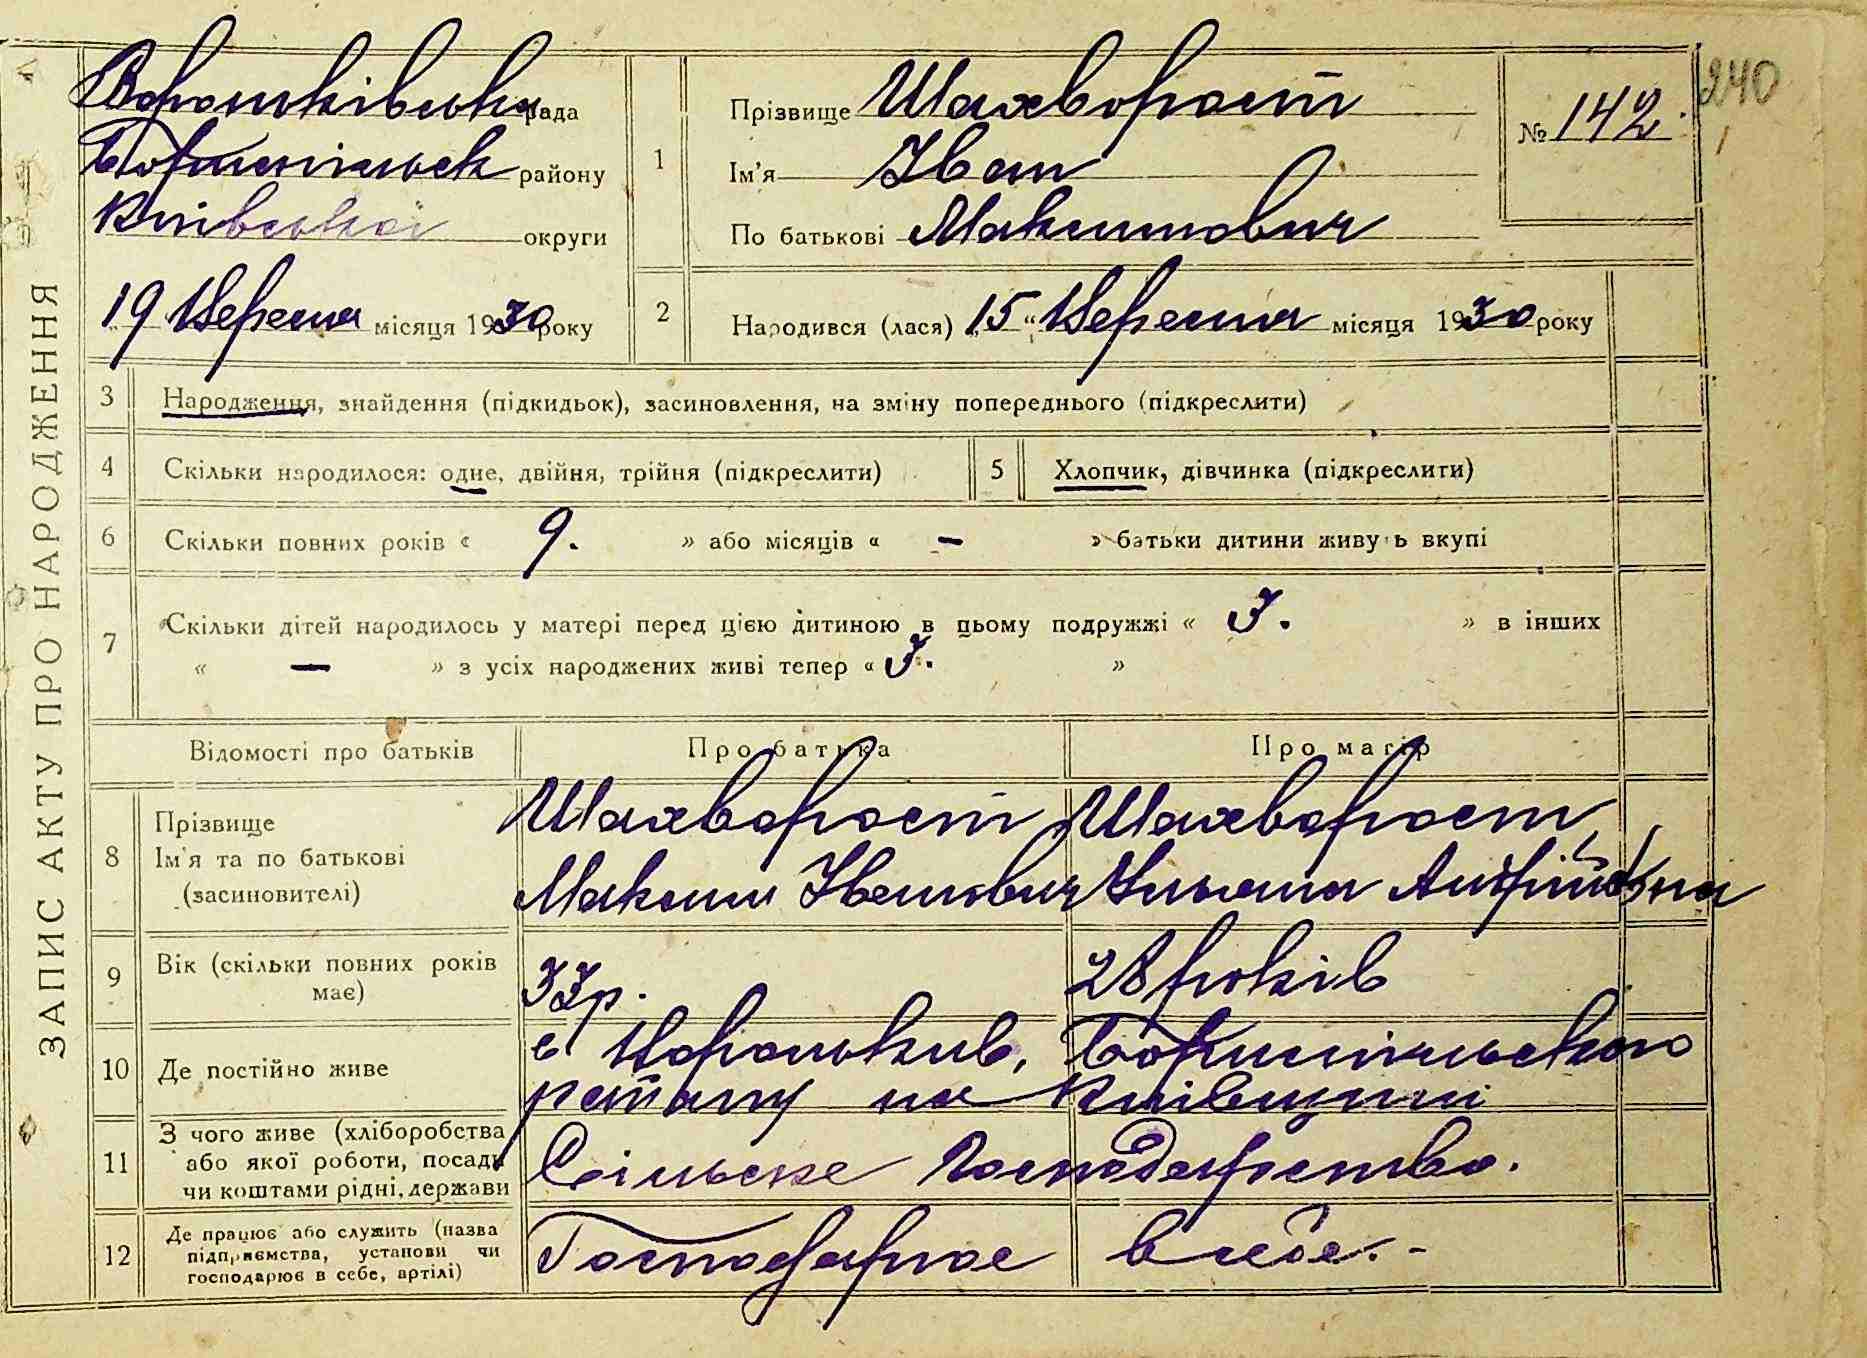 ЗАПИС АКТУ ПРО НАРОДЖЕННЯ
Вороньківська рада
Бориспільськ району
Київської округи
19 Вересня місяця 1930 року
1
Прізвище Шахворост
Ім'я Іван
По батькові Максимович
№ 142.
240
2 Народився (лася) „15“ Вересня місяця 1930 року
3 Народження, знайдення (підкидьок), засиновлення, на зміну попереднього (підкреслити)
4 Скільки народилося: одне, двійня, трійня (підкреслити)
5 Хлопчик, дівчинка (підкреслити)
6 Скільки повних років « 9. » або місяців « – » батьки дитини живуть вкупі
7 Скільки дітей народилось у матері перед цією дитиною в цьому подружжі « 3. » в інших
« — » з усіх народжених живі тепер « 3. »
Відомості про батьків Про батька Про матір
8 Прізвище
Ім'я та по батькові
(засиновителі)
Шахворост
Максим Іванович
Шахворост
Ульяна Андріївна
9 Вік (скільки повних років
має)
33р. 28 років
10 Де постійно живе
с Вороньків, Бориспільського
району на Київщині
11 З чого живе (хліборобства
або якої роботи, посади
чи коштами рідні, держави
Сільське Господарство.
12 Де працює або служить (назва
підприємства, установи чи
господарює в себе, артілі)
Господарює в себе.-